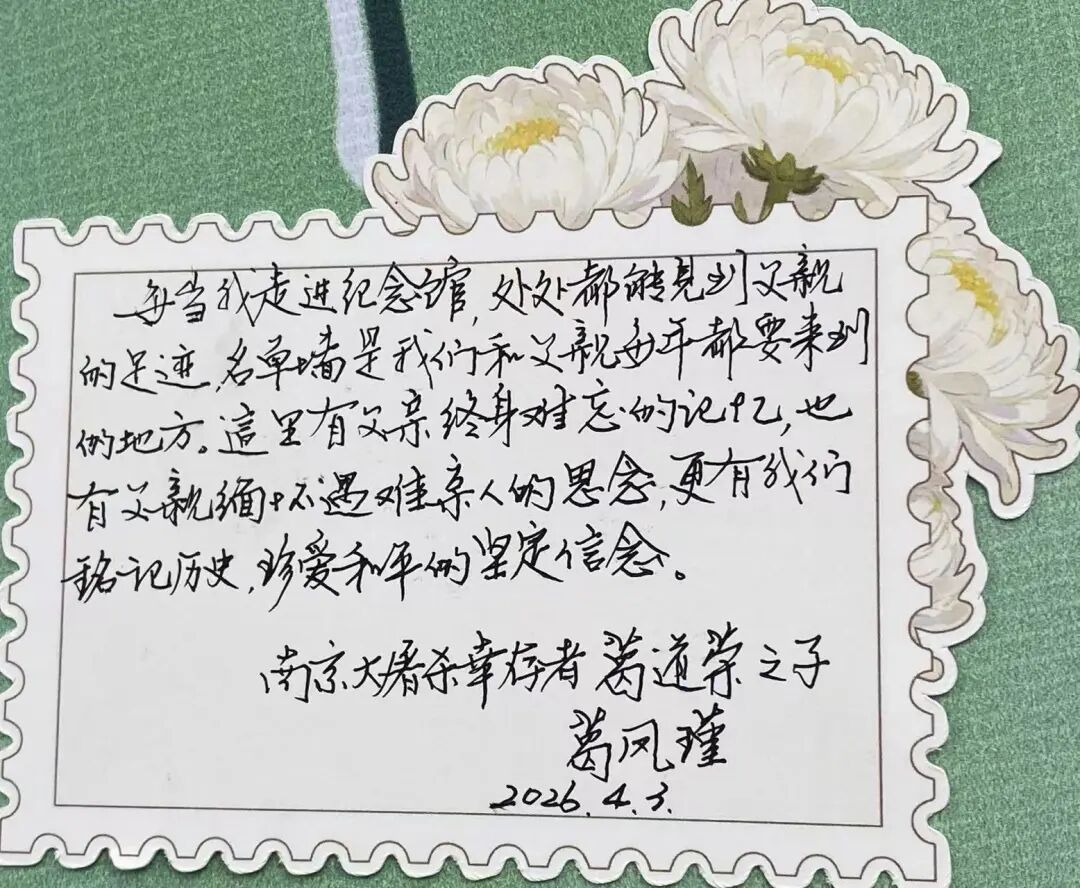 每当我走进纪念馆,处处都能见到父親
的足迹,名单墙是我们和父親每年都要来到
的地方。這里有父亲终身难忘的记忆,也
有父親缅怀遇难亲人的思念,更有我们
铭记历史,珍爱和平的坚定信念。
南京大屠杀幸存者葛道荣之子
葛凤瑾
2026.4.3.